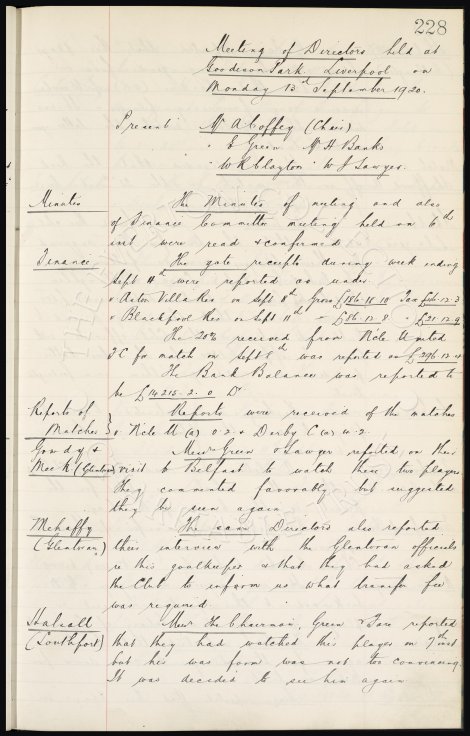 228
Meeting of Directors held at
Goodison Park, Liverpool on
Monday 13th September 1920.
Present Mr A Coffey (Chair)
" E Green Mr H Banks
" W R Clayton " W J Sawyer.
Minutes The Minutes of meeting and also
of Finance Committee meeting held on 6th
inst were read & confirmed
Finance. The gate receipts during week ending
Sept 11th were reported as under
v Aston Villa Res on Sept 8th Gross £186.18.10 Tax
v Blackpool Res on Sept 11th " £86.12.8 " £21.12.9
The 20% received from Ncle United
F C for match on Sept 8th was reported as
The Bank Balance was reported to
be £14215. 2. 0 Dr
Reports of Matches Reports were received of the matches
v Ncle U (a) 0.2 & Derby C (a) 4.2.
Gowdy & Mack (Glentoran) Messrs Green & Sawyer reported on their
visit to Belfast to watch these two players
They commented favorably but suggested
they be seen again
Mehaffy (Glentoran) The same Directors also reported
their interview with the Glentoran officials
re this goalkeeper & that they had asked
the Club to inform us what transfer fee
was required.
Halsall (Southport) Messrs The Chairman, Green & reported
that they had watched this player on 7th inst
but his was form was not too convincing.
It was decided to see him again